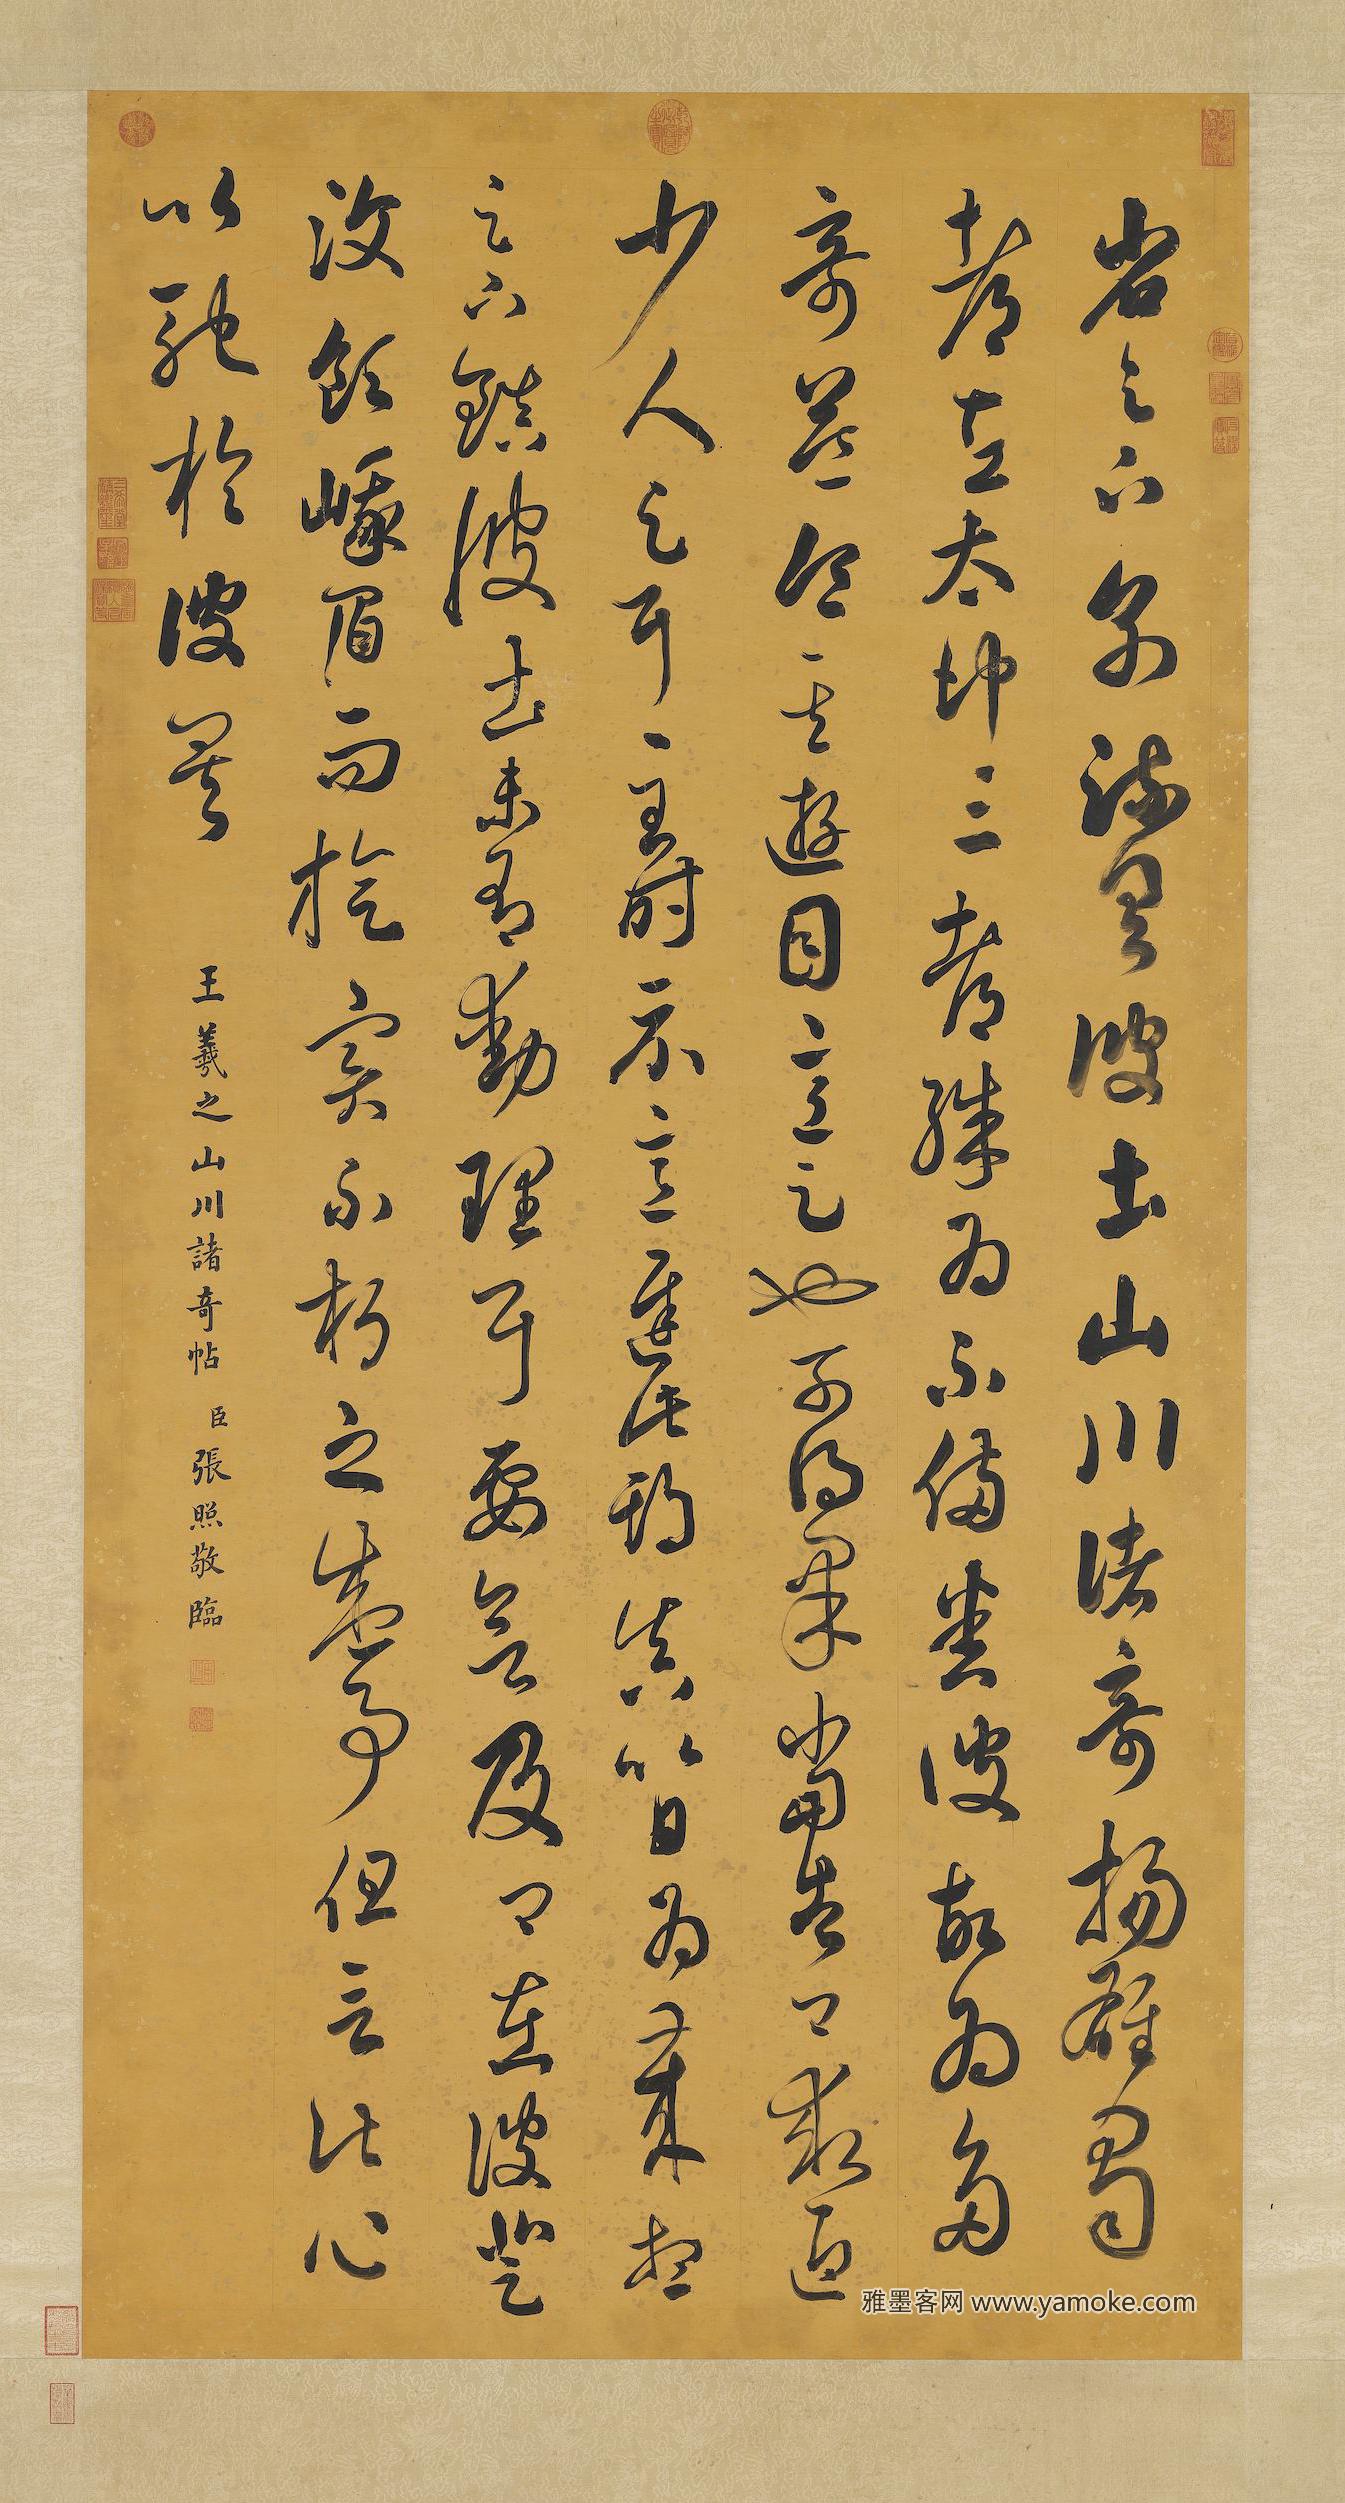 省足下別疏具彼土山川諸奇揚雄蜀
都左太沖三都殊為不備悉彼故為多
奇益令其遊目意足也可得果當告卿求迎
少人足耳至時示意遲此期真以日為歲想
足下鎮彼土未有動理耳要欲及卿在彼登
汶領峨眉而旋實不朽之盛事但言此心
以馳於彼矣
王羲之山川諸奇帖 臣張照敬臨
雅墨客网 www.yamoke.com